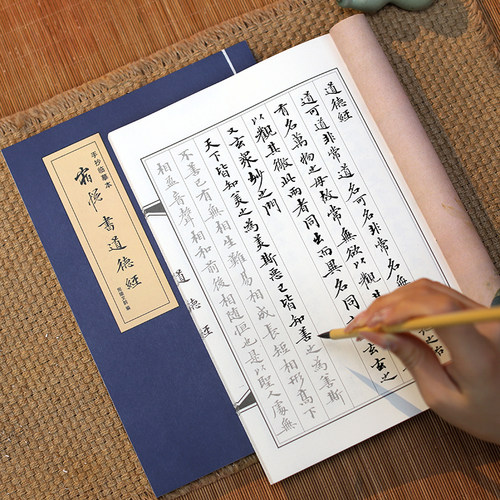 道德經
道可道非常道名可名非常名
之始
有名萬物之母故常無欲以觀其
以觀其徼此兩者同出而異名同
玄之
又玄衆妙之門
天下皆知美之為美斯惡已皆知善之為善斯
不善已有無相生難易相成長短相形高下
相盈音聲相和前後相隨恒也是以聖人處無
道德經
手抄臨摹本
書道德經